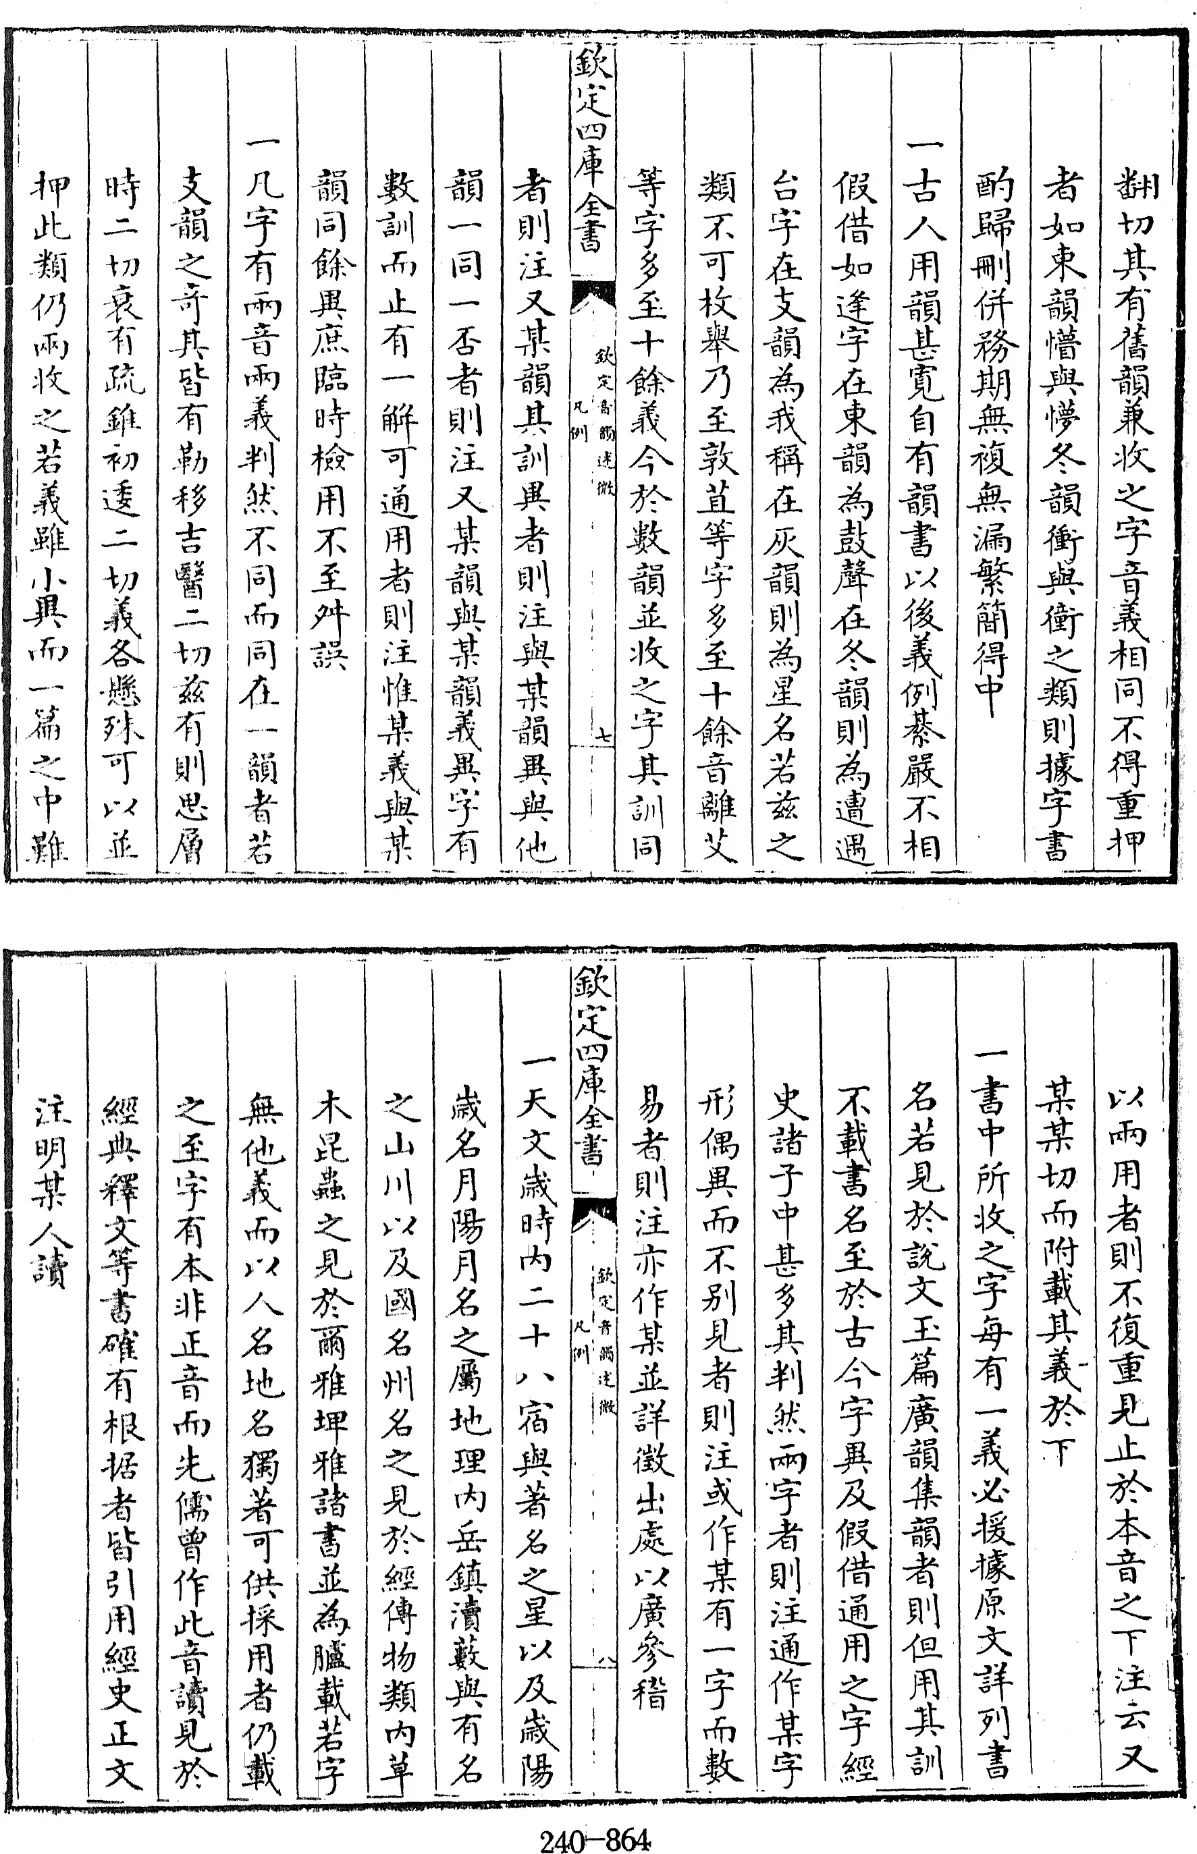 翻切其有舊韻兼收之字音義相同不得重押
者如東韻懵與懜冬韻衝與衝之類則據字書
酌歸刪併務期無複無漏繁簡得中
一古人用韻甚寬自有韻書以後義例綦嚴不相
假借如逢字在東韻為鼓聲在冬韻則為遭遇
台字在支韻為我稱在灰韻則為星名若兹之
類不可枚舉乃至敦苴等字多至十餘音離艾
等字多至十餘義今於數韻並收之字其訓同
欽定四庫全書
欽定音韻述微
凡例
七
者則注又某韻其訓異者則注與某韻異與他
韻一同一否者則注又某韻與某韻義異字有
數訓而止有一解可通用者則注惟某義與某
韻同餘異庶臨時檢用不至舛誤
一凡字有兩音兩義判然不同而同在一韻者若
支韻之奇其皆有勒移吉醫二切兹有則思層
時二切衰有疏錐初逶二切義各懸殊可以並
押此類仍兩收之若義雖小異而一篇之中難
以兩用者則不復重見止於本音之下注云又
某某切而附載其義於下
一書中所收之字每有一義必援據原文詳列書
名若見於說文玉篇廣韻集韻者則但用其訓
不載書名至於古今字異及假借通用之字經
史諸子中甚多其判然兩字者則注通作某字
形偶異而不别見者則注或作某有一字而數
易者則注亦作某並詳徵出處以廣參稽
欽定四庫全書
欽定音韻述微
凡例
八
一天文歲時内二十八宿與著名之星以及歲陽
歲名月陽月名之屬地理内岳鎮瀆藪與有名
之山川以及國名州名之見於經傳物類内草
木昆蟲之見於爾雅埤雅諸書並為臚載若字
無他義而以人名地名獨著可供採用者仍載
之至字有本非正音而先儒曾作此音讀見於
經典釋文等書確有根据者皆引用經史正文
注明某人讀
240-864